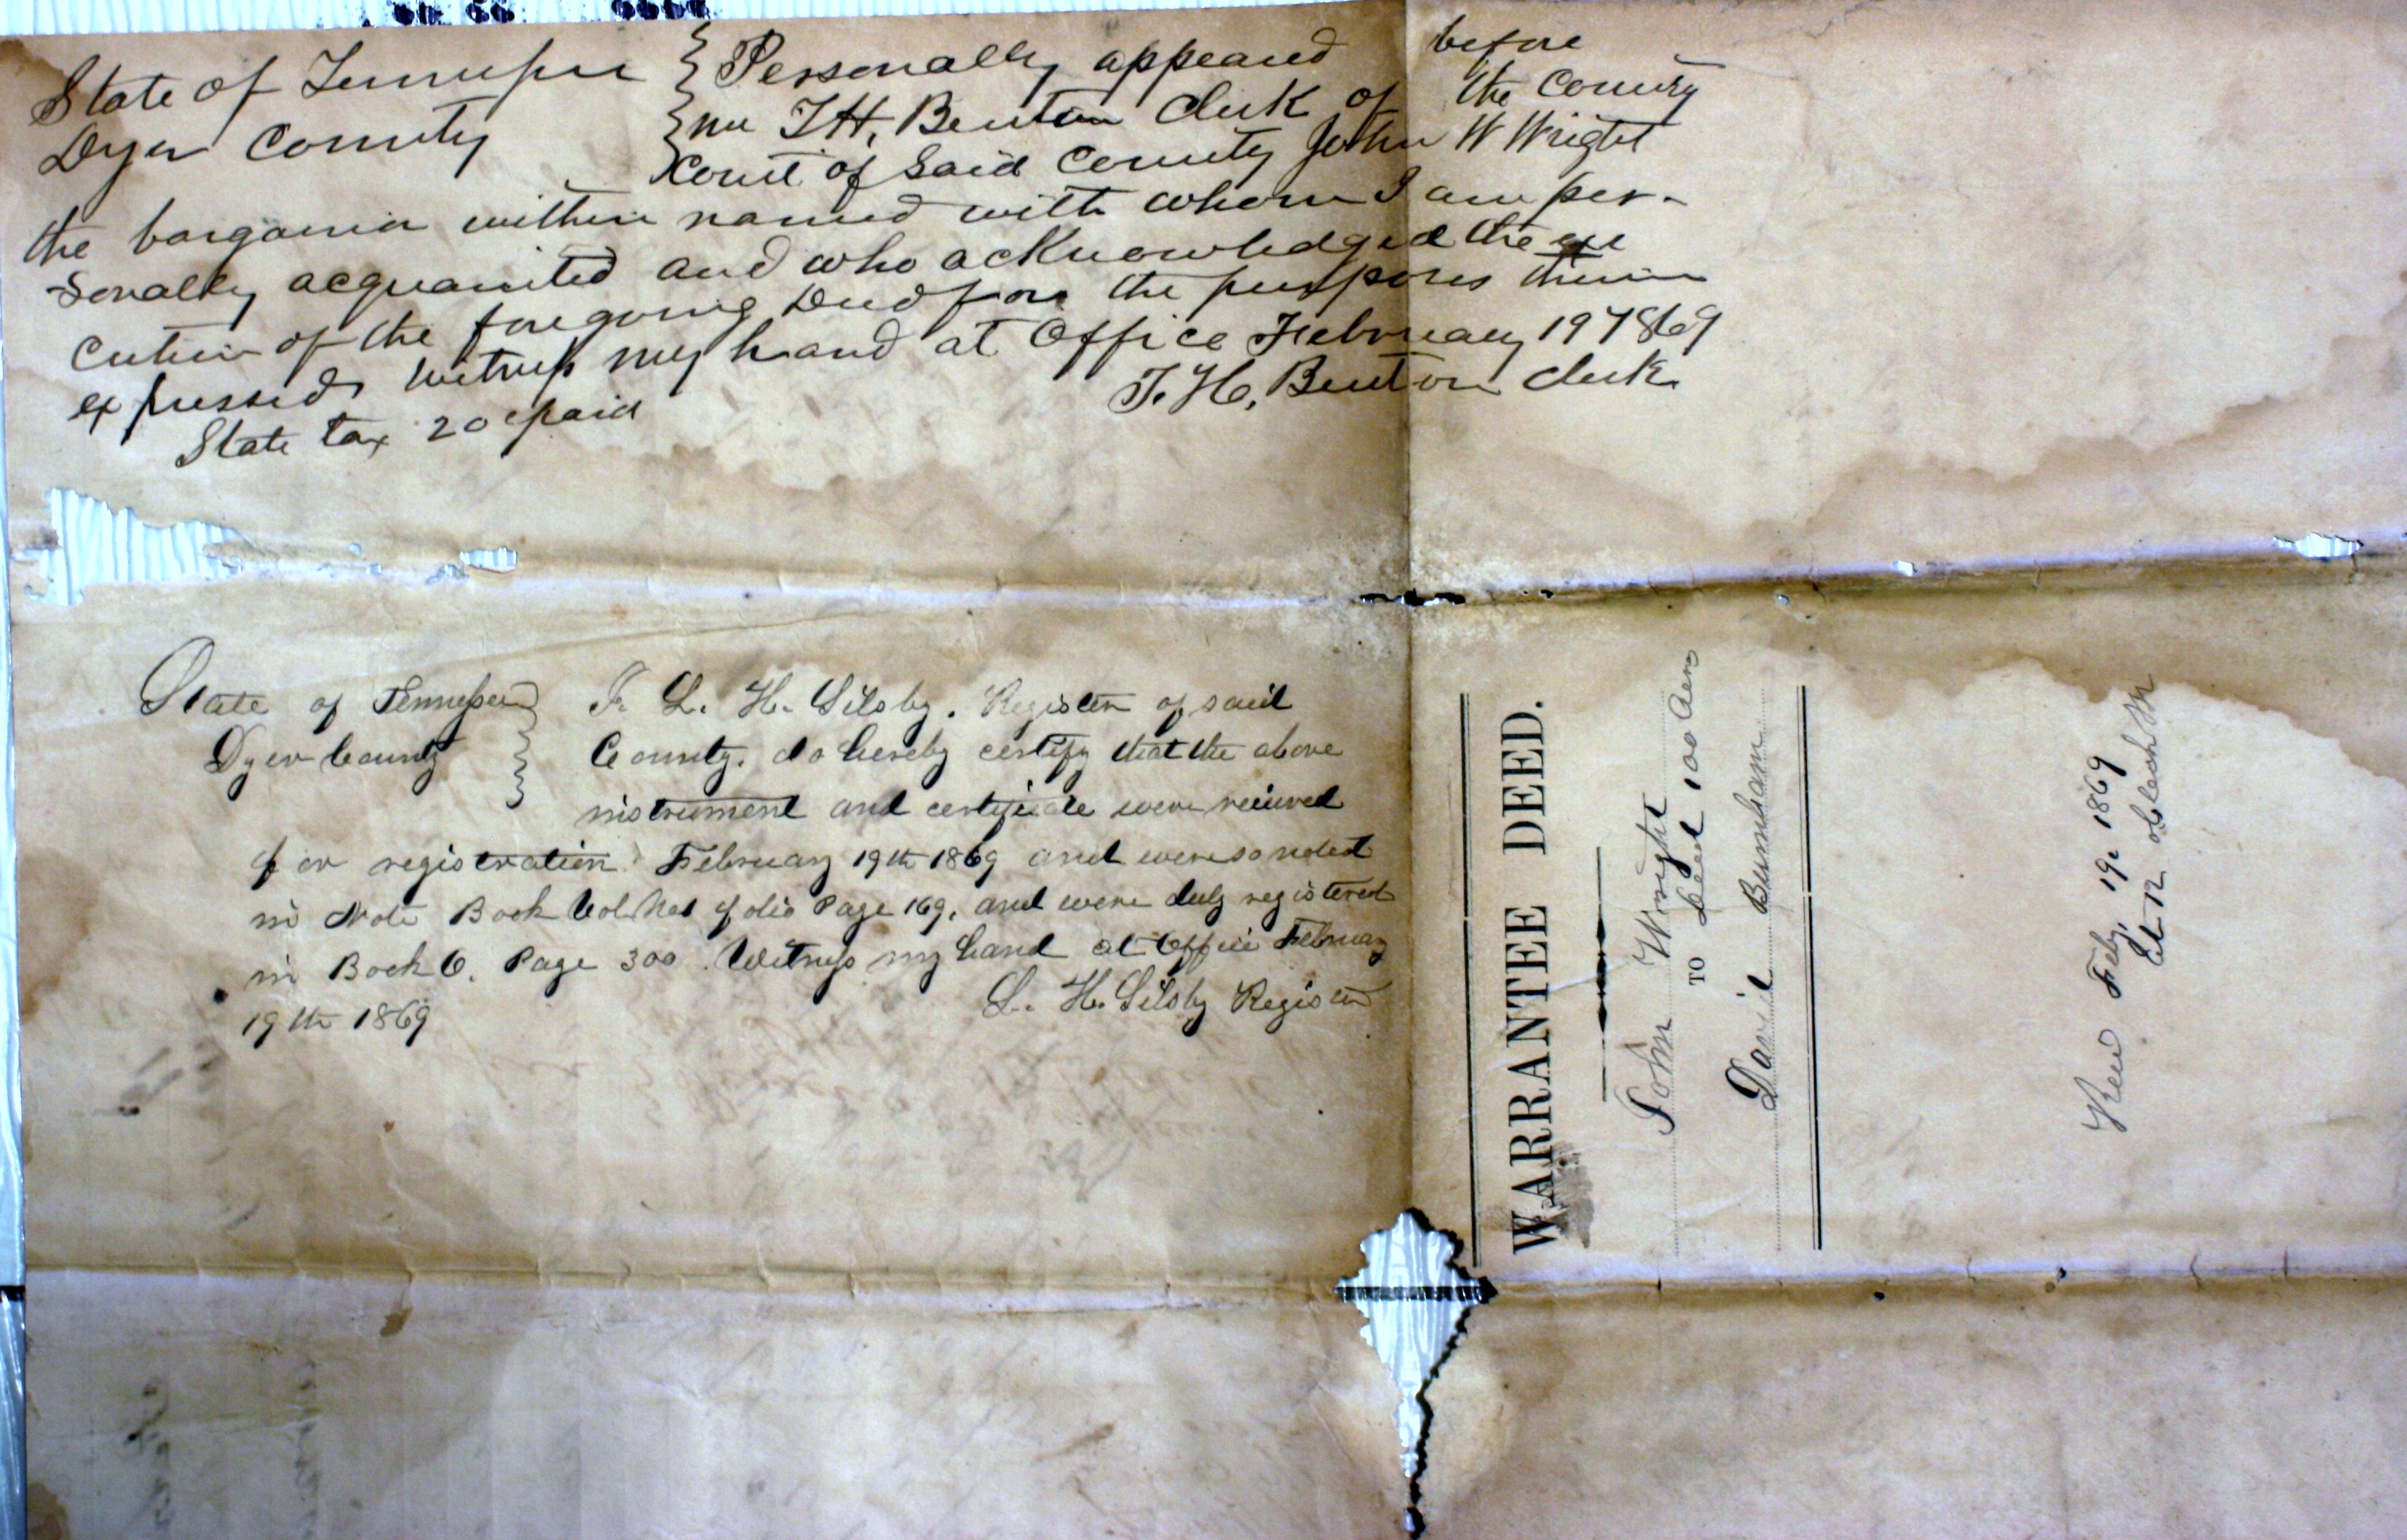 State of Tennessee } Personally appeared before
Dyer County } me T.H. Benton Clerk of the County
Court of Said County John W Wright
the bargainer within named with whom I am per-
sonally acquainted and who acknowledged the exe
cution of the foregoing Deed for the purposes therein
expressed Witness my hand at Office February 19 1869
T. H. Benton Clerk
State tax 20 c paid
State of Tennessee } I. L. H. Silsby. Register of said
Dyer County } County. do hereby certify that the above
instrument and certificate were recieved
for registration February 19th 1869 and were so noted
in Note Book Vol No 1 folio Page 169, and were duly registered
in Book O. Page 300. Witness my hand at Office February
19th 1869 L. H. Silsby Register
WARRANTEE DEED.
John Wright
TO Deed 100 Acres
David Burnham
Feby 19. 1869
at 12 oclock M